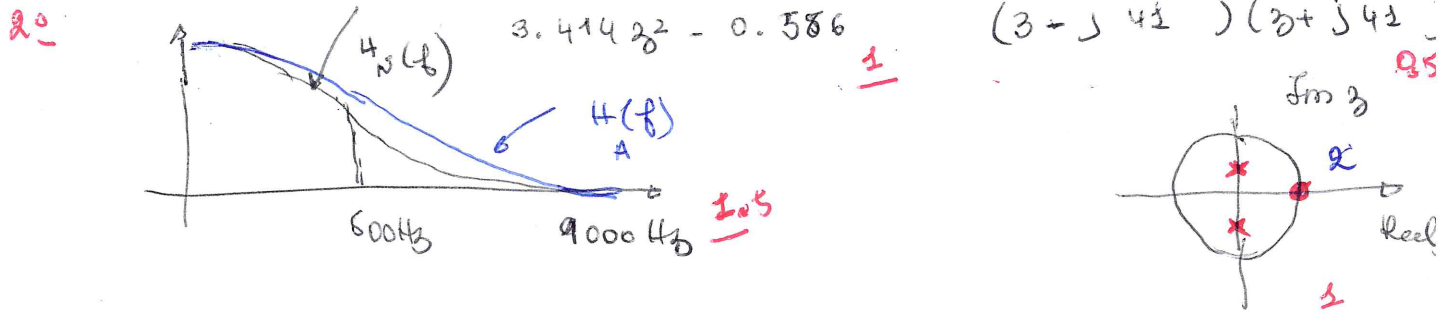 2º
3.414 z² - 0.586
1
(z - j 41 ) (z + j 41
0,5
H_N(f)
H_A(f)
600Hz
9000 Hz
1.5
Im z
2
Reel
1